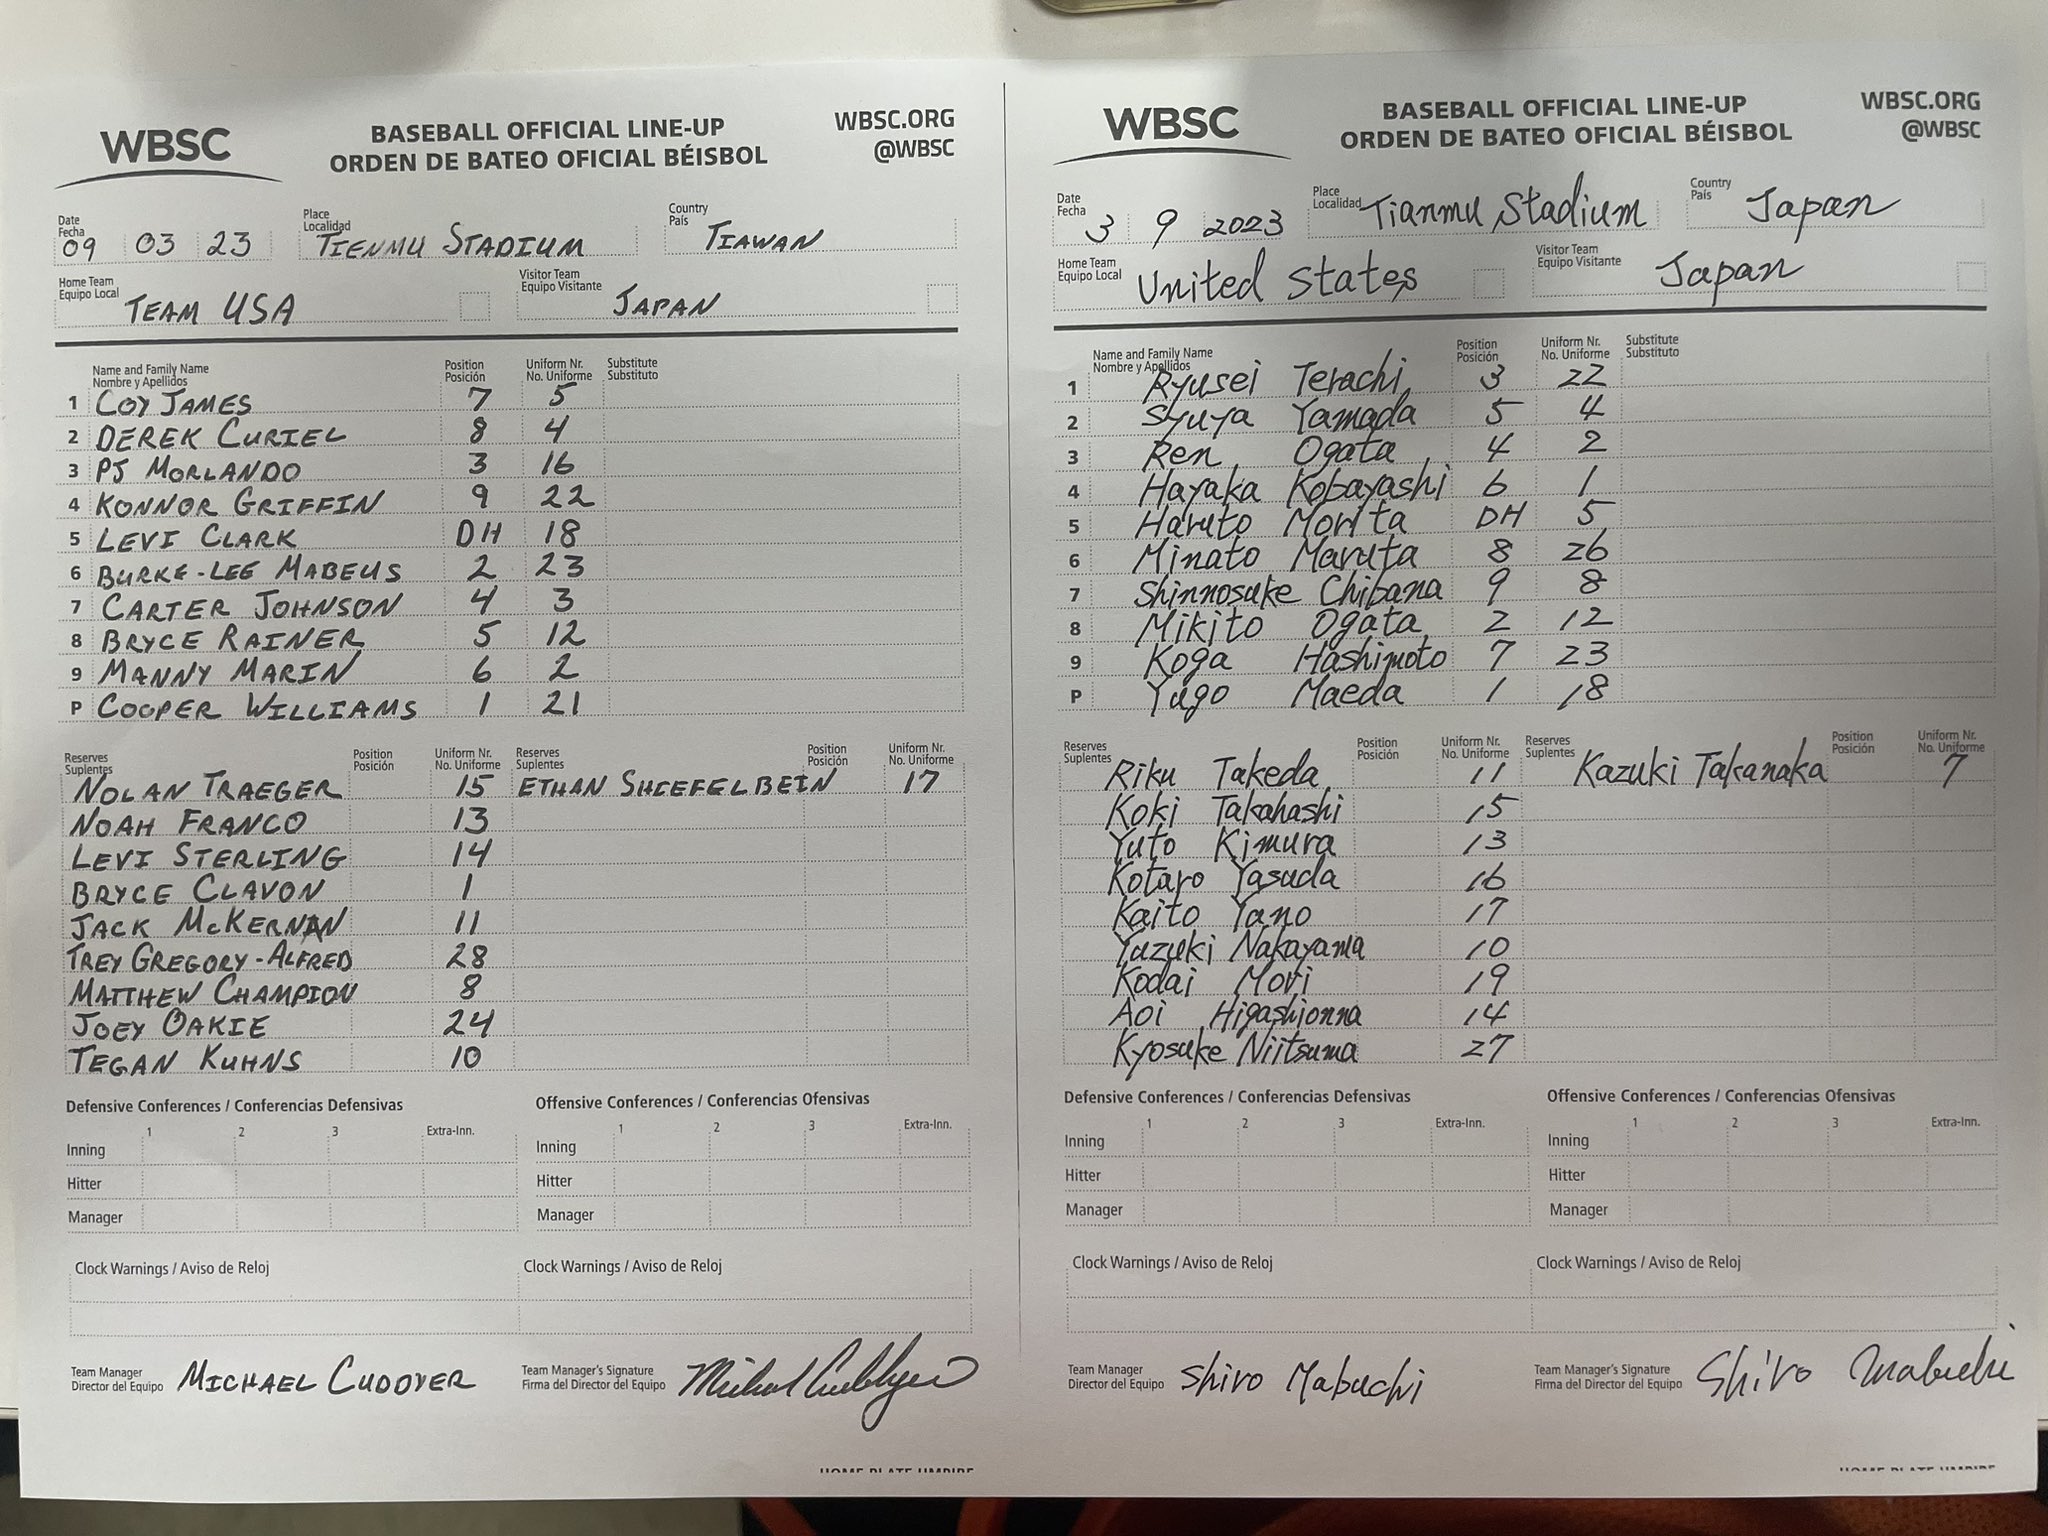 WBSC
BASEBALL OFFICIAL LINE-UP
ORDEN DE BATEO OFICIAL BÉISBOL
WBSC.ORG
@WBSC
Date Fecha 09 03 23 Place Localidad TIENMU STADIUM Country País TIAWAN
Home Team Equipo Local TEAM USA Visitor Team Equipo Visitante JAPAN
Name and Family Name Nombre y Apellidos Position Posición Uniform Nr. No. Uniforme Substitute Substituto
1 COY JAMES 7 5
2 DEREK CURIEL 8 4
3 PJ MORLANDO 3 16
4 KONNOR GRIFFIN 9 22
5 LEVI CLARK DH 18
6 BURKE-LEE MABEUS 2 23
7 CARTER JOHNSON 4 3
8 BRYCE RAINER 5 12
9 MANNY MARIN 6 2
P COOPER WILLIAMS 1 21
Reserves Suplentes Position Posición Uniform Nr. No. Uniforme Reserves Suplentes Position Posición Uniform Nr. No. Uniforme
NOLAN TRAEGER 15 ETHAN SHCEFELBEIN 17
NOAH FRANCO 13
LEVI STERLING 14
BRYCE CLAVON 1
JACK McKERNAN 11
TREY GREGORY-ALFRED 28
MATTHEW CHAMPION 8
JOEY OAKIE 24
TEGAN KUHNS 10
Defensive Conferences / Conferencias Defensivas Offensive Conferences / Conferencias Ofensivas
1 2 3 Extra-Inn. 1 2 3 Extra-Inn.
Inning Inning
Hitter Hitter
Manager Manager
Clock Warnings / Aviso de Reloj Clock Warnings / Aviso de Reloj
Team Manager Director del Equipo MICHAEL CUDDYER Team Manager's Signature Firma del Director del Equipo Michael Cuddyer
HOME PLATE UMPIRE
WBSC
BASEBALL OFFICIAL LINE-UP
ORDEN DE BATEO OFICIAL BÉISBOL
WBSC.ORG
@WBSC
Date Fecha 3 9 2023 Place Localidad Tianmu Stadium Country País Japan
Home Team Equipo Local United States Visitor Team Equipo Visitante Japan
Name and Family Name Nombre y Apellidos Position Posición Uniform Nr. No. Uniforme Substitute Substituto
1 Ryusei Terachi 3 22
2 Syuya Yamada 5 4
3 Ren Ogata 4 2
4 Hayaka Kobayashi 6 1
5 Haruto Morita DH 5
6 Minato Maruta 8 26
7 Shinnosuke Chibana 9 8
8 Mikito Ogata 2 12
9 Koga Hashimoto 7 23
P Yugo Maeda 1 18
Reserves Suplentes Position Posición Uniform Nr. No. Uniforme Reserves Suplentes Position Posición Uniform Nr. No. Uniforme
Riku Takeda 11 Kazuki Takanaka 7
Koki Takahashi 15
Yuto Kimura 13
Kotaro Yasuda 16
Kaito Yano 17
Yuzuki Nakayama 10
Kodai Mori 19
Aoi Higashionna 14
Kyosuke Niitsuma 27
Defensive Conferences / Conferencias Defensivas Offensive Conferences / Conferencias Ofensivas
1 2 3 Extra-Inn. 1 2 3 Extra-Inn.
Inning Inning
Hitter Hitter
Manager Manager
Clock Warnings / Aviso de Reloj Clock Warnings / Aviso de Reloj
Team Manager Director del Equipo Shiro Mabuchi Team Manager's Signature Firma del Director del Equipo Shiro Mabuchi
HOME PLATE UMPIRE